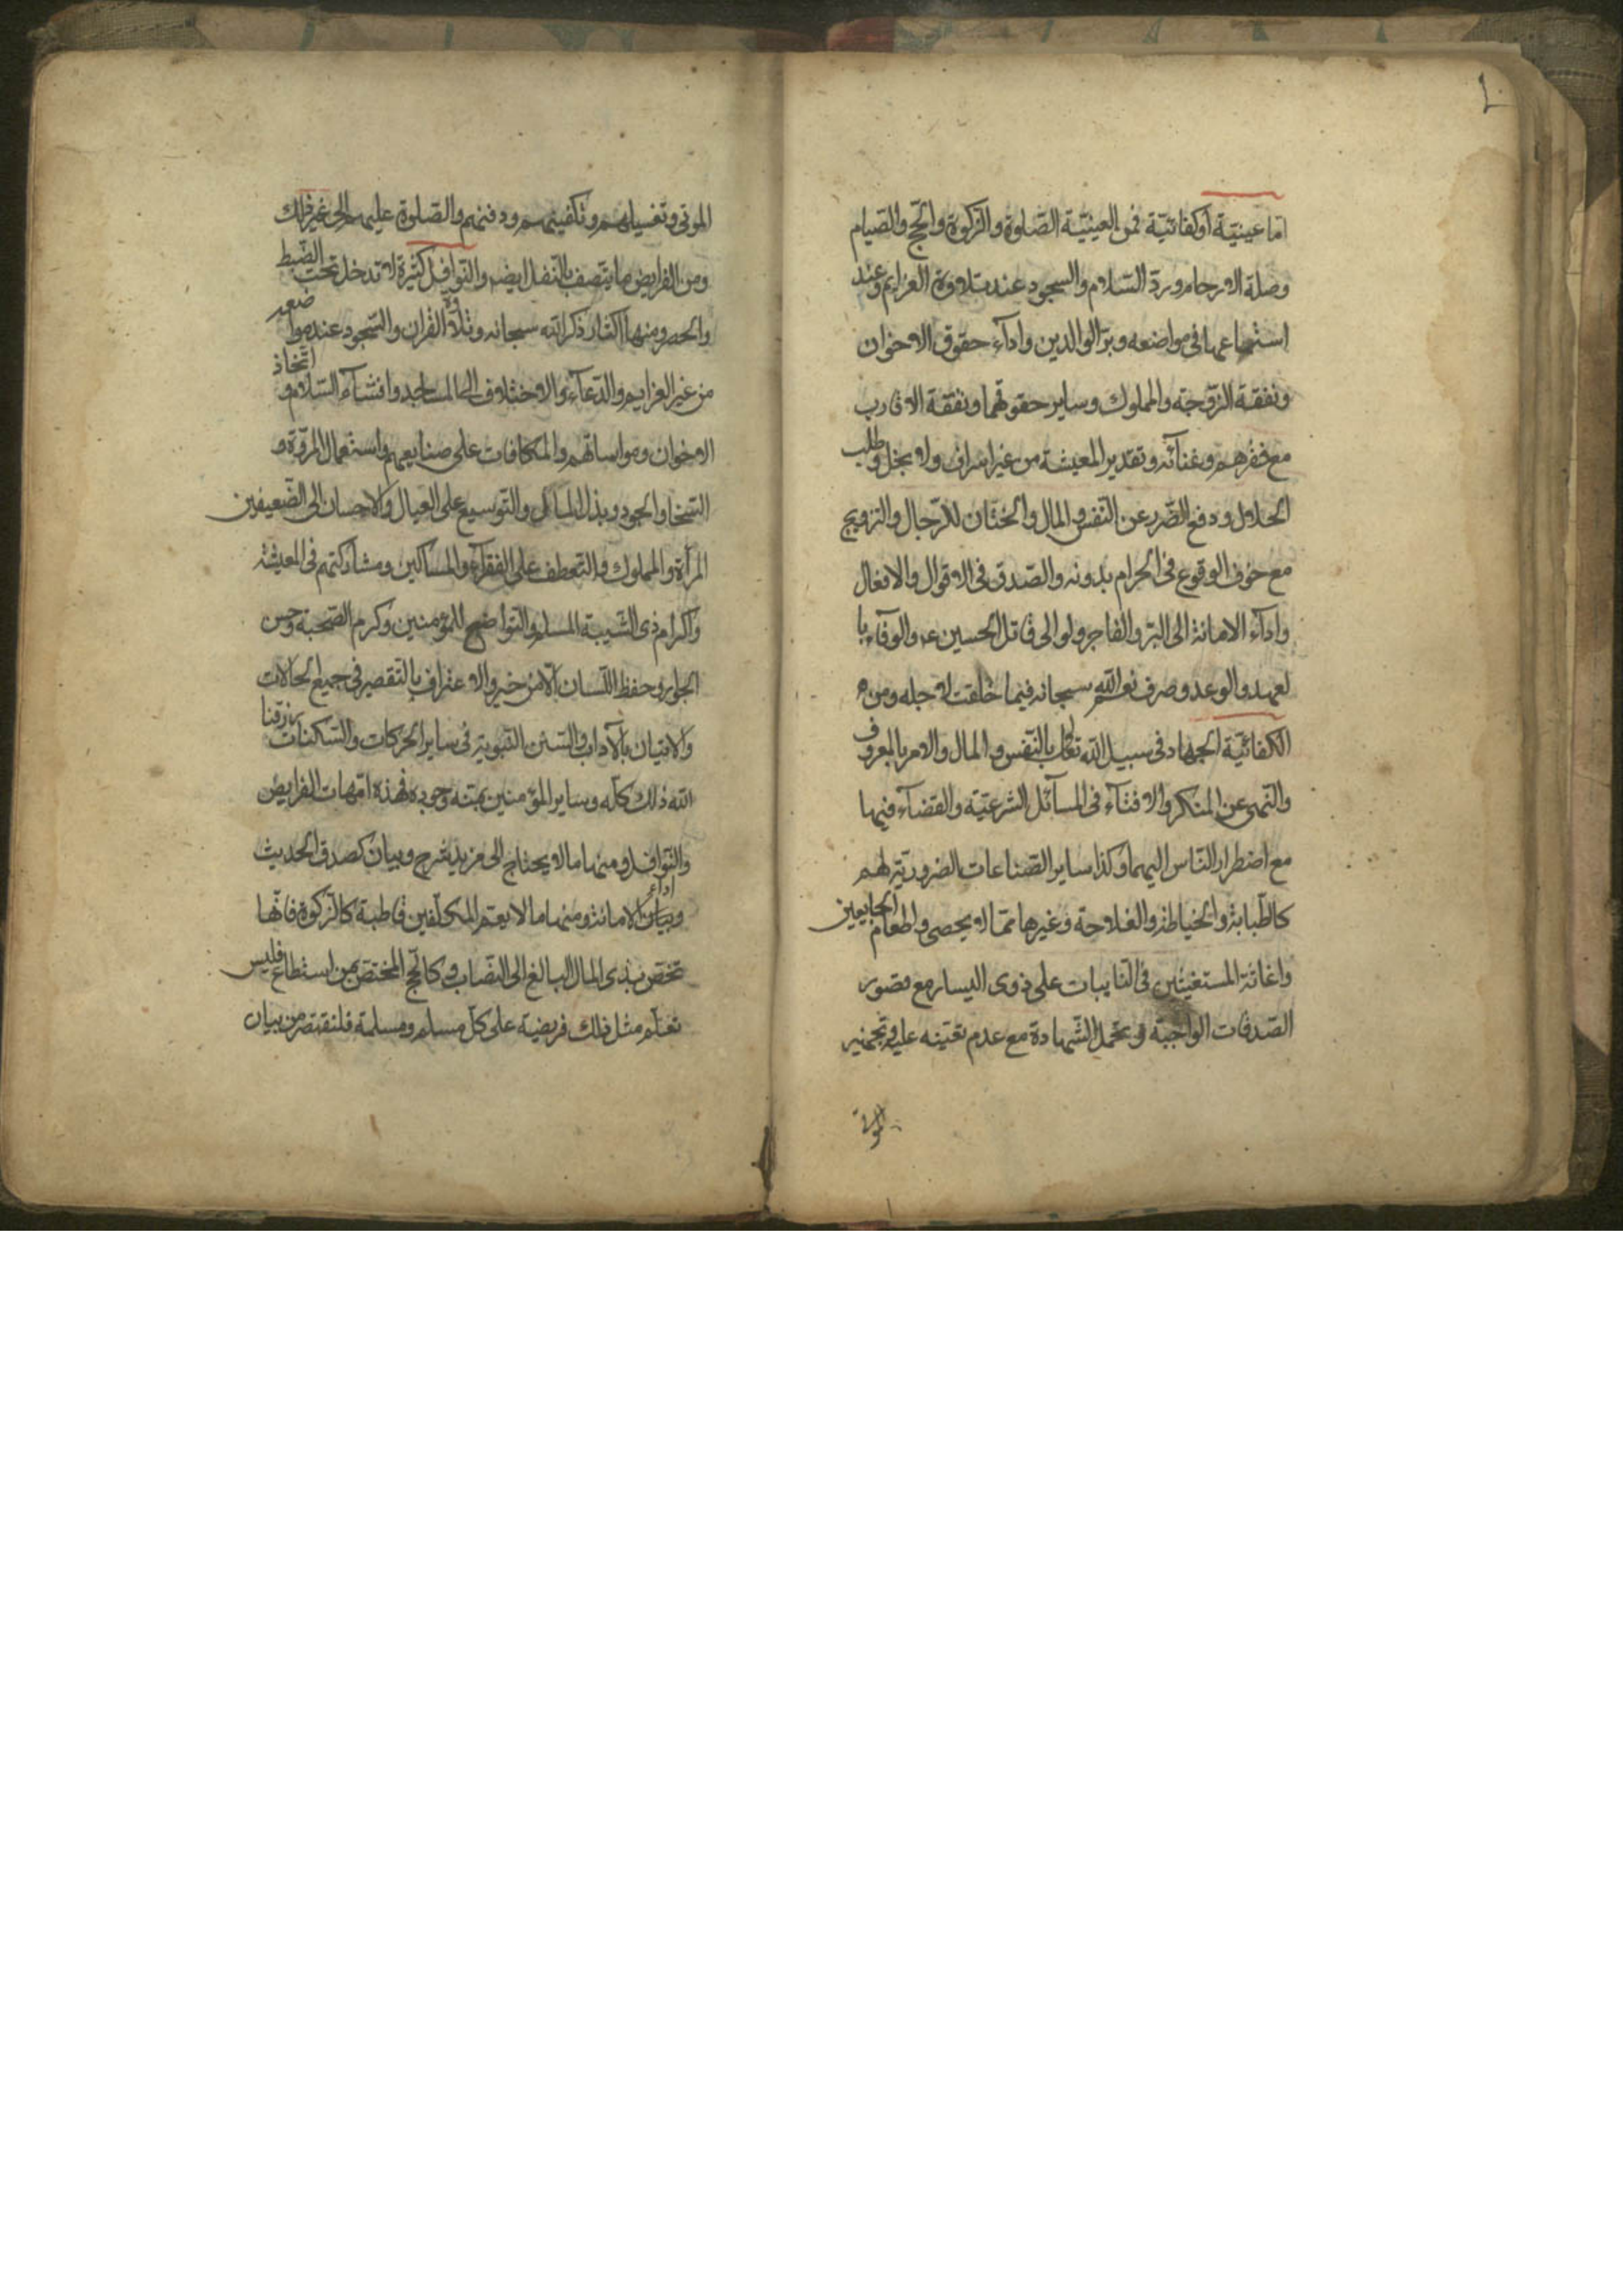 اما عينيّة او كفائيّة فمن العينيّة الصّلوة والزّكوة والحجّ والصّيام
وصلة الارحام وردّ السّلام والسجود عند تلاوة العزايم وعند
استماعها فى مواضعه وبرّ الوالدين واداء حقوق الاخوان
ونفقة الزّوجة والمملوك وساير حقوقهما ونفقة الاقارب
مع فقرهم وغنائه وتقدير المعيشة من غير اسراف ولا بخل وطلب
الحلال ودفع الضّرر عن النّفس والمال والختان للرّجال والتزويج
مع خوف الوقوع فى الحرام بدونه والصّدق فى الاقوال والافعال
واداء الامانة الى البرّ والفاجر ولو الى قاتل الحسين ع والوفاء با
لعهد والوعد وصرف نعم الله سبحانه فيما خلقت لاجله ومن
الكفائيّة الجهاد فى سبيل الله تعالى بالنّفس والمال والامر بالمعروف
والنّهى عن المنكر والافتاء فى المسائل الشرعيّة والقضاء فيها
مع اضطرار النّاس اليهما وكذا ساير الصّناعات الضروريّة لهم
كالطّبابة والخياطة والفلاحة وغيرها ممّا لا يحصى واطعام الجايعين
واغاثة المستغيثين فى النّايبات على ذوى اليسار مع قصور
الصّدقات الواجبة وتحمّل الشّهادة مع عدم تعيّنه عليه وتجهيز
الموتى
الموتى وتغسيلهم وتكفينهم ودفنهم والصّلوة عليهم الى غير ذلك
ومن الفرايض ما يتّصف بالنّفل ايضه والنّوافل كثيرة لا تدخل تحت الضّبط
والحصر ومنها اكثار ذكر الله سبحانه وتلاوة القران والسّجود عند مواضعه
من غير العزايم والدّعاء والاختلاف الى المساجد وافشاء السّلام و اتّخاذ
الاخوان ومواساتهم والمكافات على صنايعهم واستعمال المروّة و
السّخا والجود وبذل المال والتّوسيع على العيال والاحسان الى الضّعيفين
المرأة والمملوك والتعطف على الفقراء والمساكين ومشاركتهم فى المعيشة
واكرام ذى الشّيبة المسلم والتواضع للمؤمنين وكرم الصّحبة وحسن
الجوار وحفظ اللّسان الّا من خير والاعتراف بالتّقصير فى جميع الحالات
والاتيان بالآداب والسّنن النّبوية فى ساير الحركات والسّكنات رزقنا
الله ذلك كلّه وساير المؤمنين بمنّه وجوده فهذه امّهات الفرايض
والنّوافل ومنها ما لا يحتاج الى مزيد شرح وبيان كصدق الحديث
وبيان اداء الامانة ومنها ما لا يعمّ المكلّفين قاطبة كالزّكوة فانّها
تختصّ بذى المال البالغ الى النصّاب وكالحجّ المختصّ بمن استطاع فليس
تعلّم مثل ذلك فريضة على كلّ مسلم ومسلمة فلنقتصر من بيان